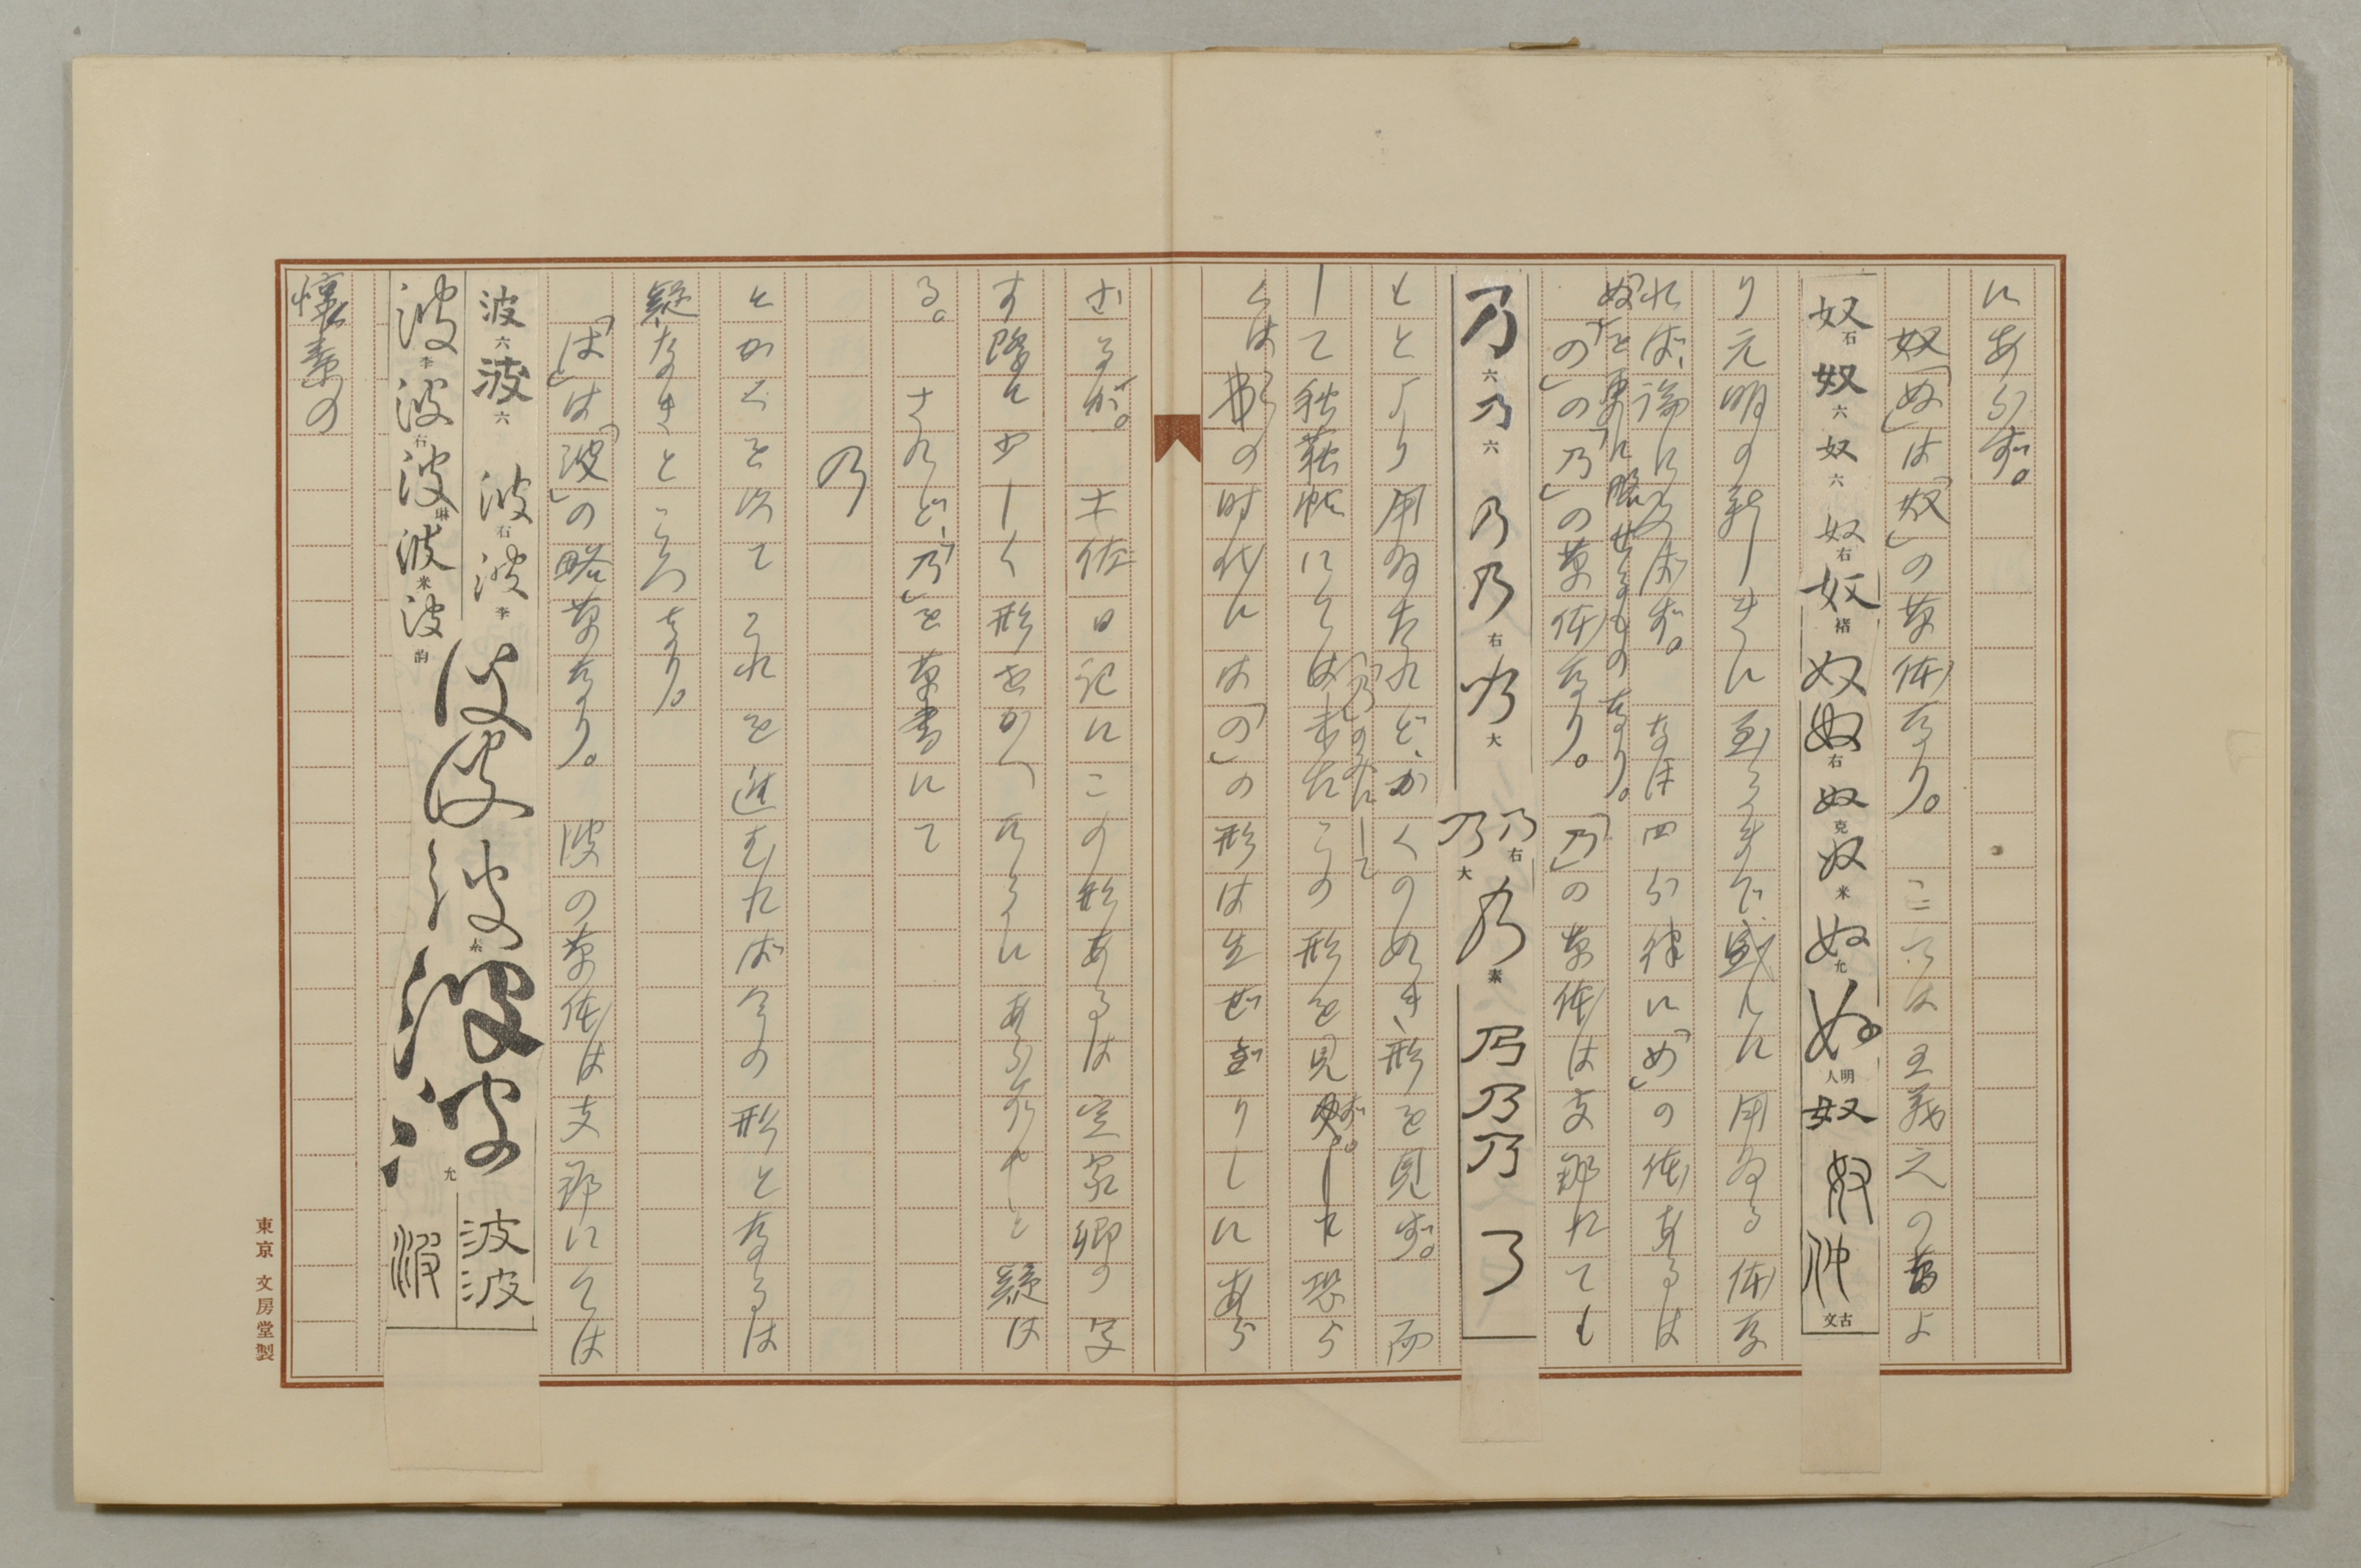 にあらず。
奴「ぬ」は「奴」の草体なり。こは王羲之の昔よ
奴石奴六奴六奴右奴褚奴奴右奴克奴米奴允奴明人奴奴㚢古文
り元明の新しきに至るまで盛んに用ゐる体な
れば、論に及ばず。なほ四分律に「め」の体あるは
「ぬ」を更に略せるものなり。
「の」の「乃」の草体なり。「乃」の草体は支那にても
乃六乃六乃乃右乃大乃右乃大乃素乃乃乃乃
もとより用ゐたれど、かくの如き形を見ず。而
して秋萩帖にては未だこの形を見ず。恐ら
「乃」のみにして
くは彼の時代には「の」の形は生ぜざりしにあら
ざるか。土佐日記にこの形あるは定家卿の写
す際に少しく形をかへたるにあらずやと疑は
る。されど、「乃」を草書にて
乃
とかくを以てこれを進むれば今の形となるは
疑なきところなり。
「は」は「波」の略草なり。波の草体は支那にては
波六波六波右波李
波李波右波琳波米波韵波波波素波波允波波波
懐素の
東京 文房堂製